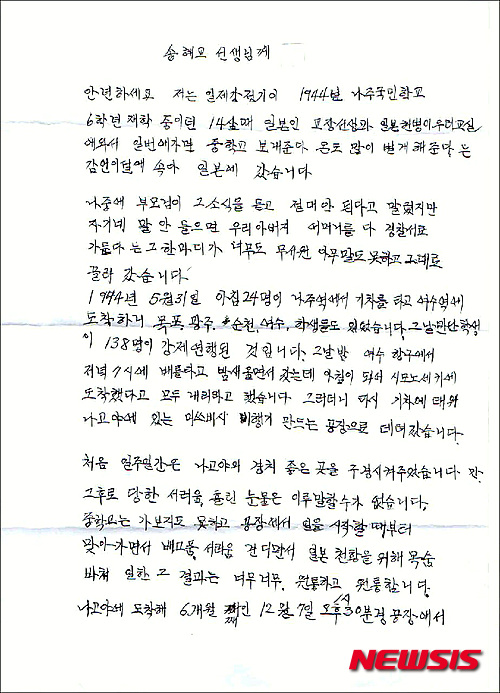 송혜교 선생님께
안녕하세요 저는 일제강점기 1944년 나주국민학교
6학년 재학 중이던 14살때 일본인 교장선생과 일본헌병이 우리교실
에와서 일번에가면 중학고 보내준다 돈도 많이 벌게 해준다 는
감언이설에 속아 일본에 갔습니다
나중에 부모님이 그소식을 듣고 절대안 된다고 말렸지만
자기네 말 안 들으면 우리아버지 어머니를 다 경찰서로
가둔다 는 그 한마디가 너무도 무서워 아무말도 못하고 그대로
끌려 갔습니다.
1944년 5월31일 아침 24명이 나주역에서 기차를 타고 여수역에
도착하니 목포, 광주, 순천, 여수, 학생들도 있었습니다. 그날만난 학생
이 138명이 강제연행된 것입니다. 그날밤 여수 항구에서
저녁 7시에 배를타고 밤새울면서 갔는데 아침이 되서 시모노세키에
도착했다고 모두 내리라고 했습니다 그러더니 다시 기차에 태워
나고야에 있는 미쓰비시 비행기 만드는 공장으로 데려갔습니다.
처음 일주일간은 나고야와 경치 좋은 곳을 구경시켜주었습니다
그후로 당한 서러움, 흘린 눈물은 이루말할수가 없습니다.
중학교는 가보지도 못하고 공장에서 일을 시작할 때부터
맞아가면서 배고품, 서러움 견디면서 일본 천황을 위해 목숨
바쳐 일한 그 결과는 너무너무 원통하고 원통합니다.
나고야에 도착해 6개월 째인 12월 7일 오후 1시 30분경 공장에서
NEWSIS